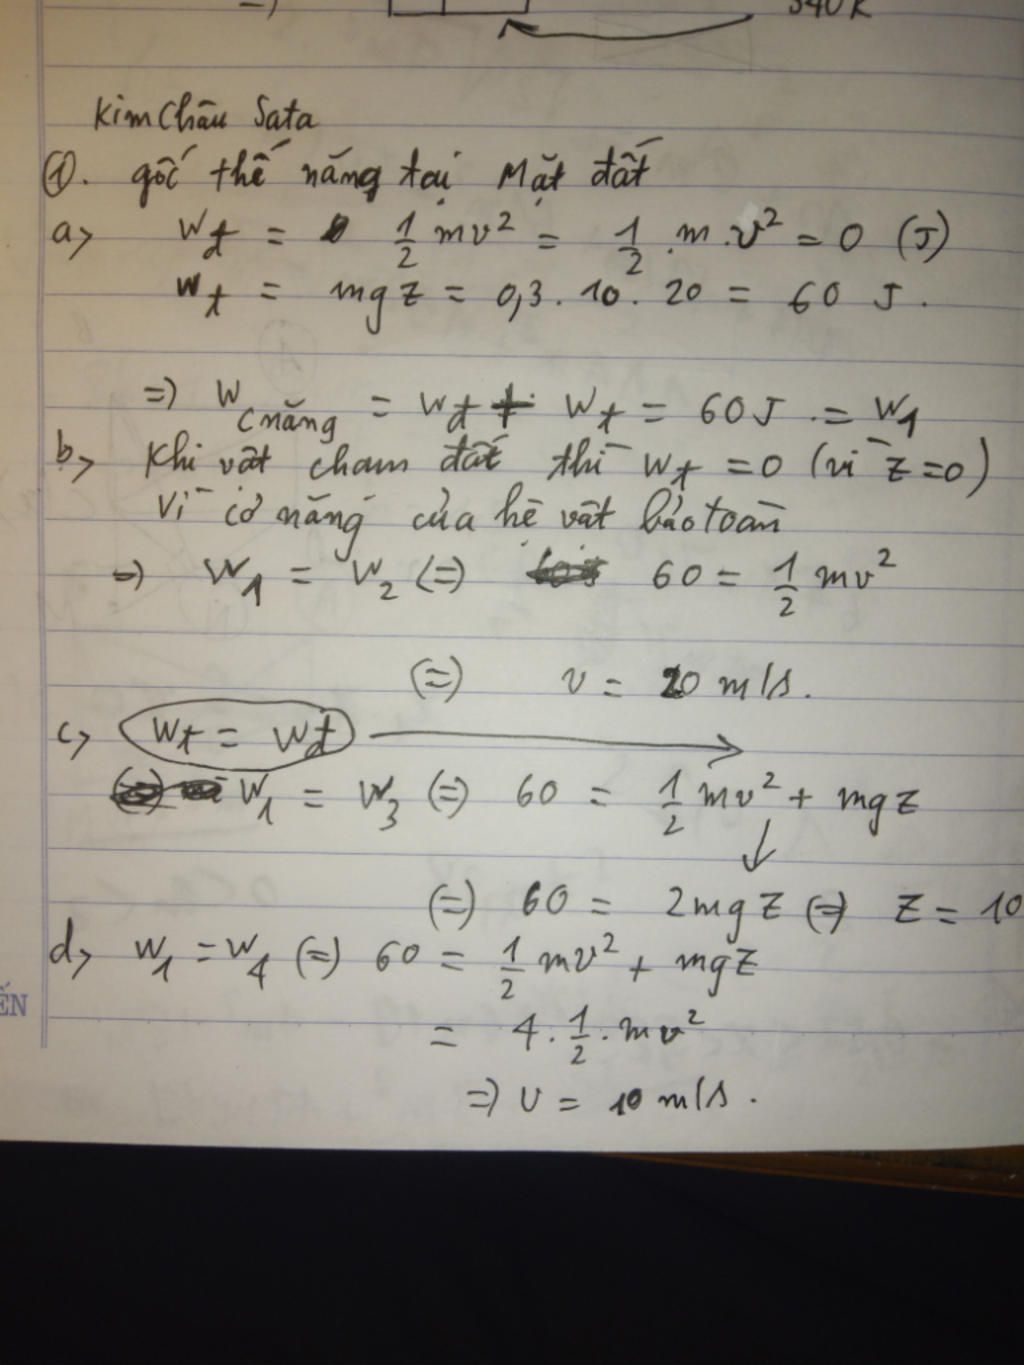 340K
Kim Châu Sata
①. gốc thế năng tại Mặt đất
a> Wđ = 1/2 mv² = 1/2 .m.v² = 0 (J)
Wt = mgz = 0,3.10.20 = 60 J.
=) W cnăng = Wđ + Wt = 60J .= W1
b> Khi vật chạm đất thì Wt = 0 (vì z=0)
Vì cơ năng của hệ vật bảo toàn
=) W1 = W2 (=) 60 = 1/2 mv²
(=) v = 20 m/s.
c> Wt = Wđ
W1 = W3 (=) 60 = 1/2 mv² + mgz
(=) 60 = 2mgz (=) z = 10
d> W1 = W4 (=) 60 = 1/2 mv² + mgz
= 4.1/2.mv²
=) v = 10 m/s.
ẾN